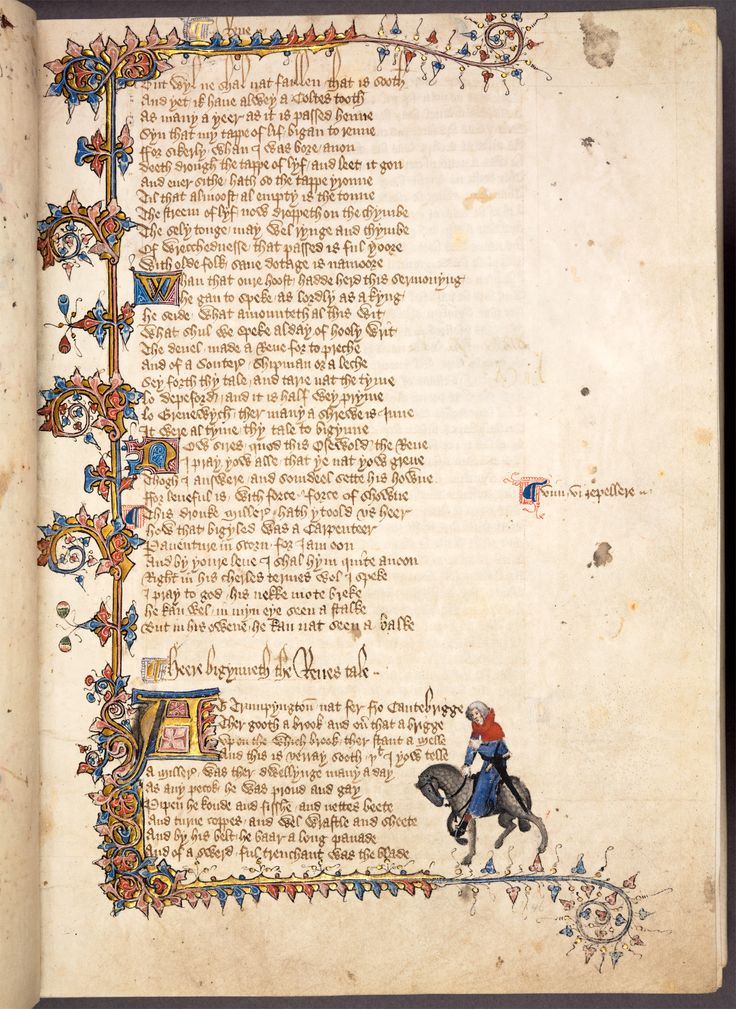 Reue
Oure wyl ne shal nat faillen that is sooth
And yet ik haue alwey a Coltes tooth
As many a yeer as it is passed henne
Syn that my tappe of lif bigan to renne
ffor sikerly whan I was bore anon
Deeth drough the tappe of lyf and leet it gon
And euer sithe hath so the tappe yronne
Til that almoost al empty is the tonne
The streem of lyf now droppeth on the chymbe
The sely tonge may wel rynge and chymbe
Of wrecchednesse that passed is ful yoore
With olde folk saue dotage is namoore
Whan that oure hoost hadde herd this sermonyng
He gan to speke as lordly as a kyng
He seide what amounteth al this wit
What shul we speke alday of hooly writ
The deuel made a Reue for to preche
And of a Souter Shipman or a leche
Sey forth thy tale and tarie nat the tyme
Lo Depeford and it is half wey pryme
Lo Grenewych ther many a shrewe is Inne
It were al tyme thy tale to bigynne
Now sires quod this Osewold the Reue
I pray yow alle that ye nat yow greue
Thogh I answere and somdeel sette his howue
ffor leueful is with force force of showue
Vim vi repellere
This dronke Millere hath ytoold vs heer
How that bigyled was a Carpenteer
Pauenture in scorn for I am oon
And by youre leue I shal hym quite anoon
Right in his cherles termes wol I speke
I pray to god his nekke mote breke
He kan wel in myn eye seen a stalke
But in his owene he kan nat seen a balke
Heere bigynneth the Reues tale
At Trumpyngtoun nat fer fro Cantebrigge
Ther gooth a brook and ouer that a brigge
Vpon the which brook ther stant a Melle
And this is verray sooth that I yow telle
A Millere was ther dwellynge many a day
As any pecok he was proud and gay
Pipen he koude and fisshe and nettes beete
And turne coppes and wel wrastle and sheete
And by his belt he baar a long panade
And of a swerd ful trenchant was the blade